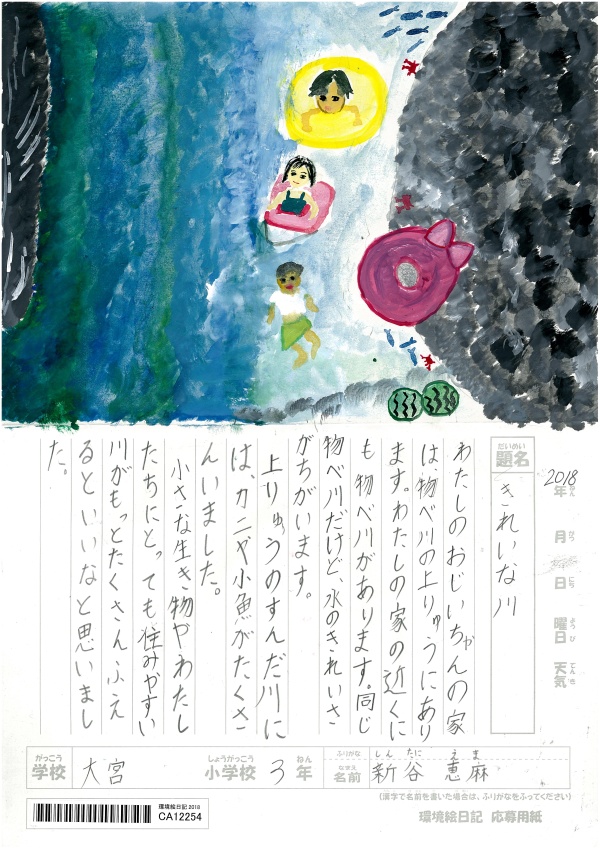 2018
年 ねん
月 がつ
日 にち
曜日 ようび
天気 てんき
題名 だいめい
きれいな川
わたしのおじいちゃんの家
は、物べ川の上りゅうにあり
ます。わたしの家の近くに
も物べ川があります。同じ
物べ川だけど、水のきれいさ
がちがいます。
上りゅうのすんだ川に
は、カニや小魚がたくさ
んいました。
小さな生き物やわたし
たちにとっても住みやすい
川がもっとたくさんふえ
るといいなと思いまし
た。
がっこう しょうがっこう ねん
学校 大宮 小学校 3 年
ふりがな しん たに え ま
なまえ
名前 新谷 恵麻
(漢字で名前を書いた場合は、ふりがなをふってください)
環境絵日記 応募用紙
環境絵日記 2018
CA12254